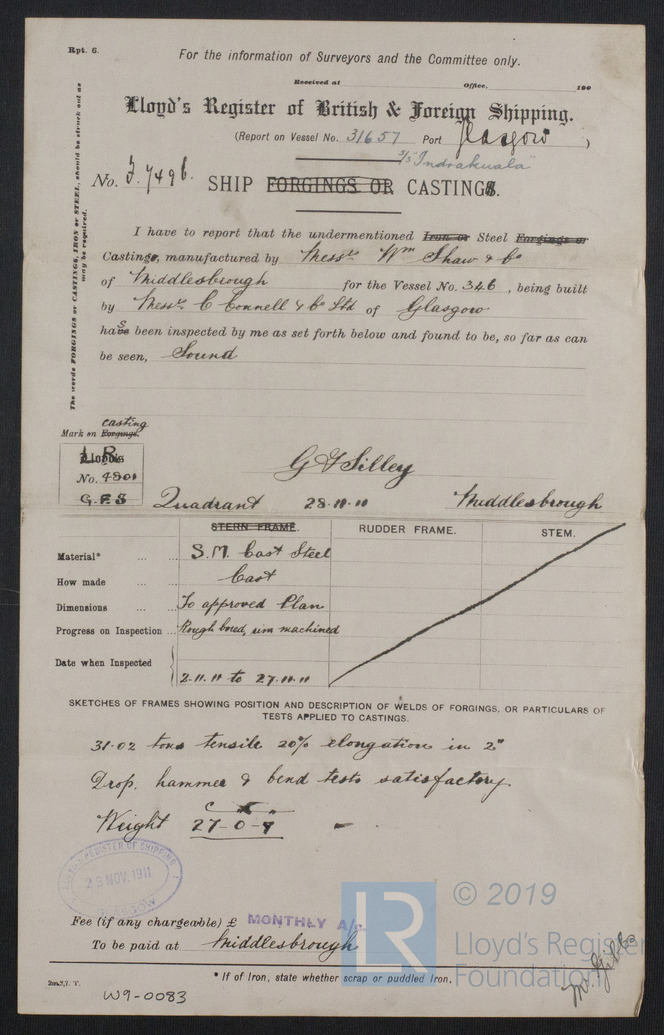 Rpt. 6.
For the information of Surveyors and the Committee only.
Received at Office, 190
Lloyd's Register of British & Foreign Shipping.
(Report on Vessel No. 31657 Port Glasgow )
S/S "Indrakuala"
No. 7496. SHIP FORGINGS OR CASTINGS.
The words FORGINGS or CASTINGS, IRON or STEEL, should be struck out as may be required.
I have to report that the undermentioned Iron or Steel Forgings or
Castings, manufactured by Messrs Wm Shaw & Co
of Middlesbrough for the Vessel No. 346, being built
by Messrs C Connell & Co Ltd of Glasgow
has been inspected by me as set forth below and found to be, so far as can
be seen, Sound
casting
Mark on Forgings.
LR
Lloyd's
No. 4801
G.F.S
G F Silley
Quadrant 28.11.11 Middlesbrough
STERN FRAME. RUDDER FRAME. STEM.
Material* ... ... S.M. Cast Steel
How made ... Cast
Dimensions ... ... To approved Plan
Progress on Inspection ... Rough bored, rim machined
Date when Inspected 2.11.11 to 27.11.11
SKETCHES OF FRAMES SHOWING POSITION AND DESCRIPTION OF WELDS OF FORGINGS, OR PARTICULARS OF
TESTS APPLIED TO CASTINGS.
31.02 tons tensile 20% elongation in 2"
Drop, hammer & bend tests satisfactory
Weight 27-0-7
LLOYD'S REGISTER OF SHIPPING
29 NOV. 1911
GLASGOW
Fee (if any chargeable) £ MONTHLY A/c
To be paid at Middlesbrough
* If of Iron, state whether scrap or puddled Iron.
W9-0083
Mr Gibb
LR
© 2019
Lloyd's Register
Foundation